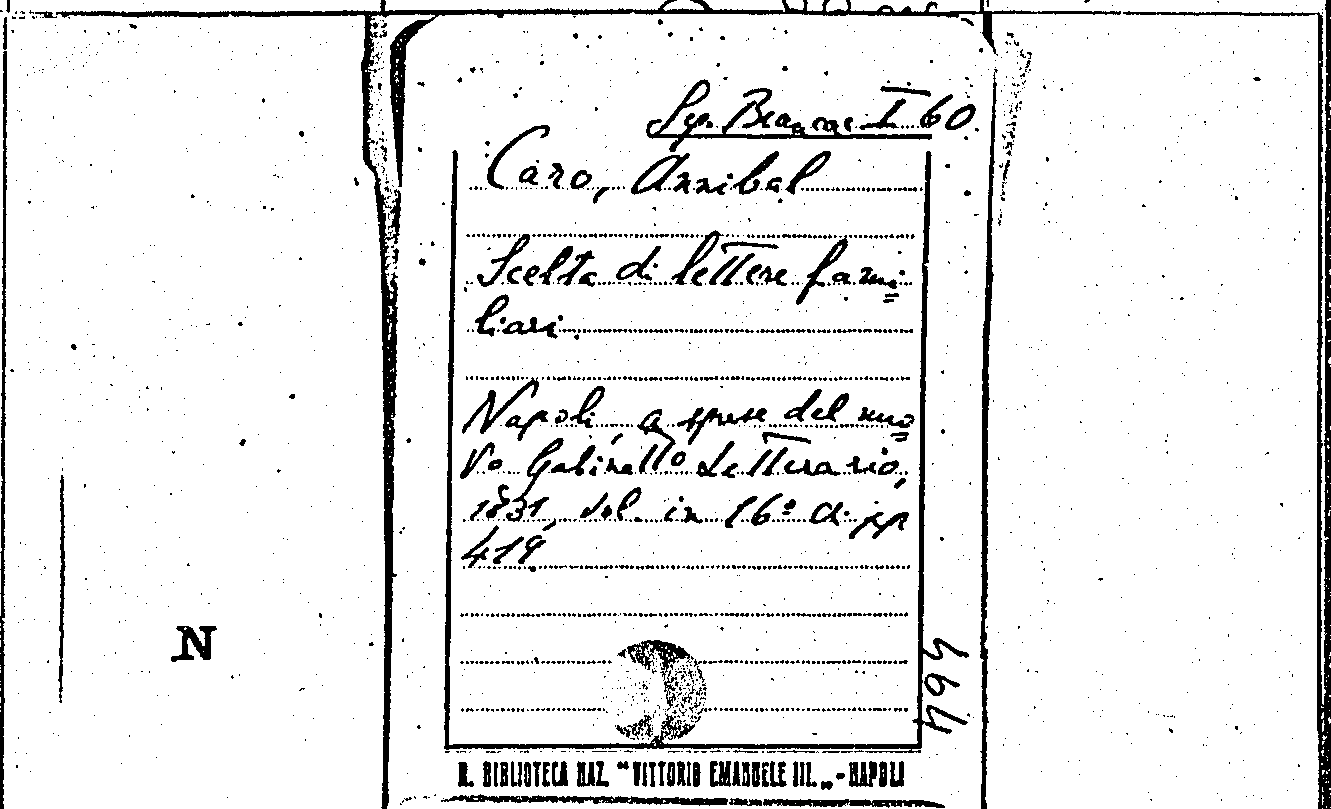 Sep. Brancac. I 60
Caro, Annibal
Scelta di lettere fami
liari.
Napoli, a spese del nuo
vo Gabinetto Letterario,
1831, vol. in 16º di pp
419.
N
R. BIBLIOTECA NAZ. "VITTORIO EMANUELE III." - NAPOLI